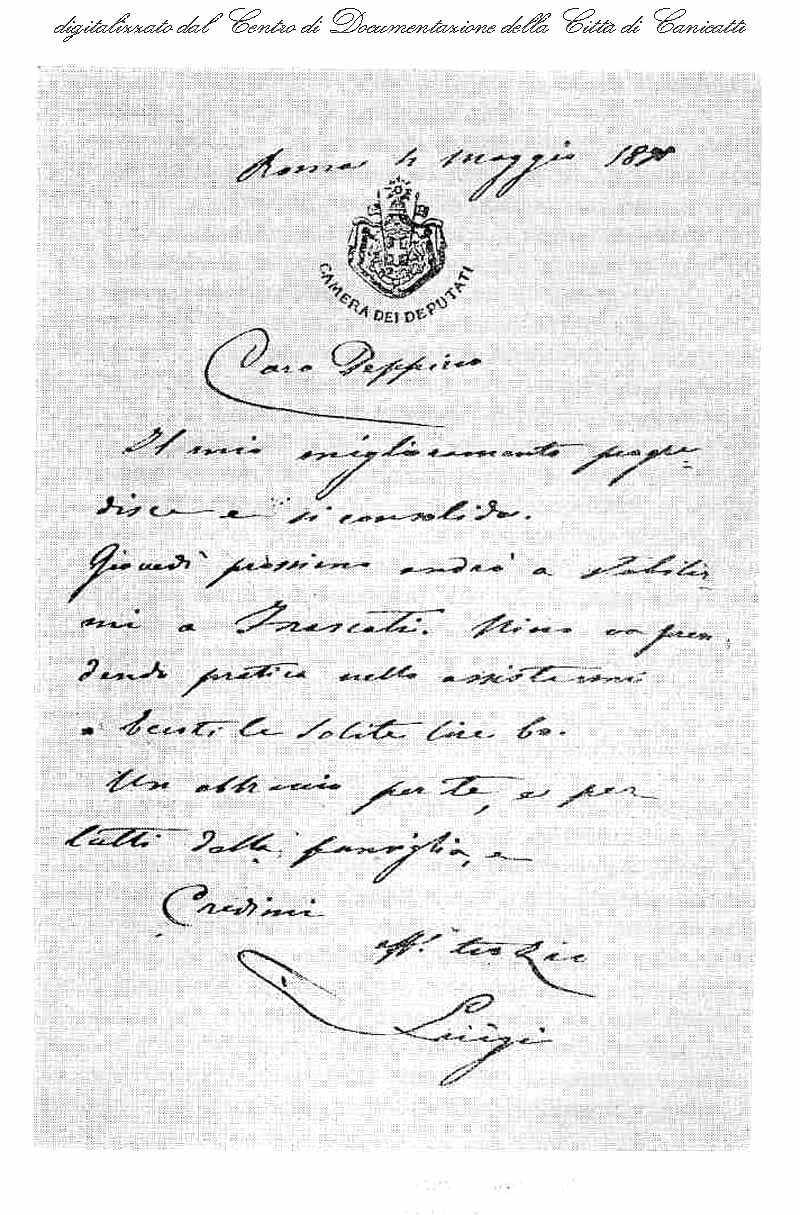 digitalizzato dal Centro di Documentazione della Città di Canicattì
Roma 4 Maggio
CAMERA DEI DEPUTATI
Caro Peppino
Il mio miglioramento progre=
disce e si consolida.
Giovedì prossimo andrò a stabilir=
mi a Frascati. Nino va pren=
dendo pratica nello assistermi
le solite lire 60.
Un abbraccio per te, e per
tutti della famiglia, e
Credimi
Aff.º tuo Zio
Luigi